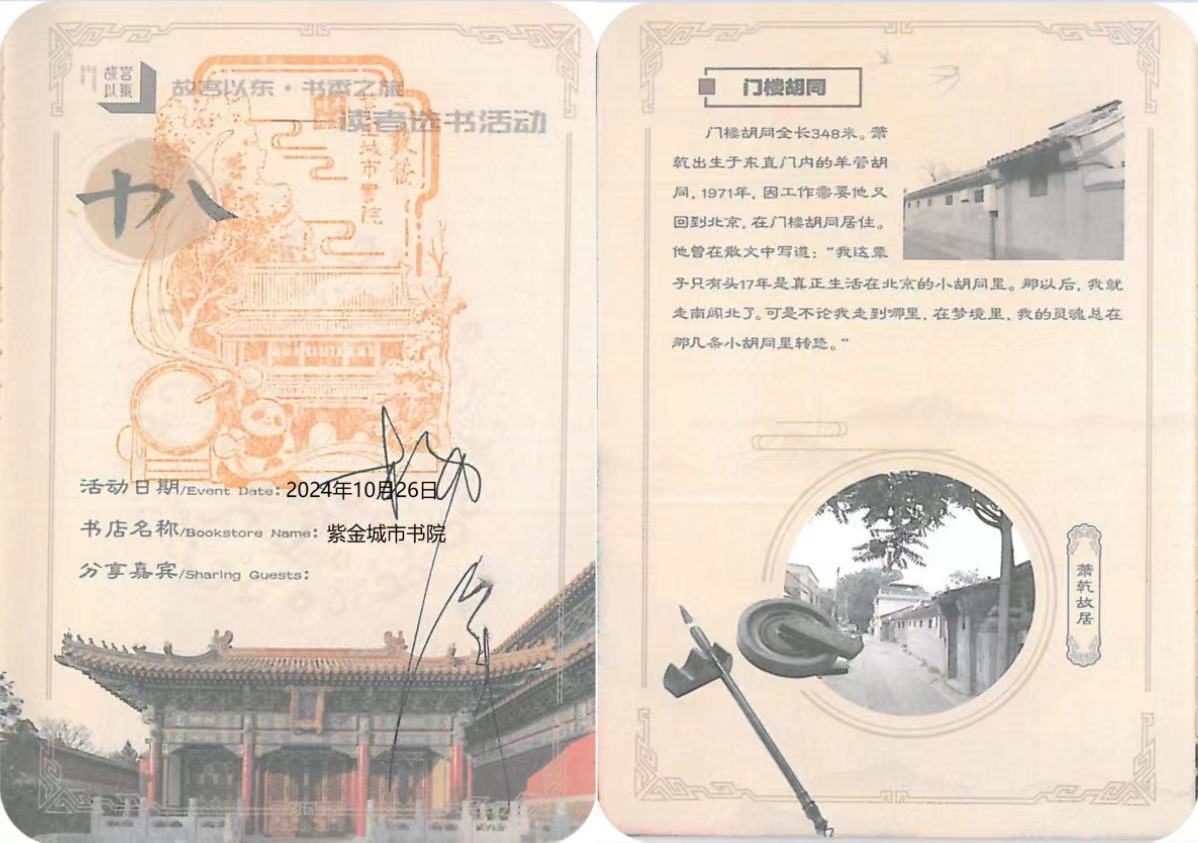 故宫
以東
故宫以东·书香之旅
读者选书活动
十八
城市書院
鼓樓
活动日期/Event Date: 2024年10月26日
书店名称/Bookstore Name: 紫金城市书院
分享嘉宾/Sharing Guests:
门楼胡同
门楼胡同全长348米。萧
乾出生于东直门内的羊管胡
同,1971年,因工作需要他又
回到北京,在门楼胡同居住。
他曾在散文中写道:“我这辈
子只有头17年是真正生活在北京的小胡同里。那以后,我就
走南闯北了。可是不论我走到哪里,在梦境里,我的灵魂总在
那几条小胡同里转悠。”
萧乾故居